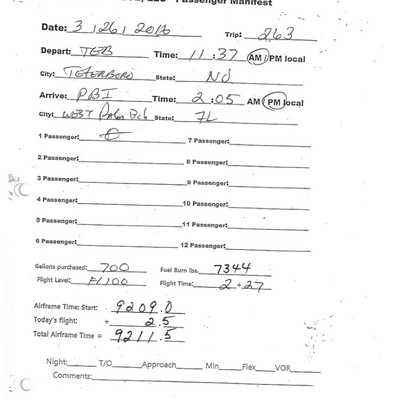 LLC - Passenger Manifest
Date: 3/26/2016 Trip: 263
Depart: TEB Time: 11:37 AM/PM local
City: TETERBORO State: NJ
Arrive: PBI Time: 2:05 AM PM local
City: WEST Palm Bch State: FL
1 Passenger: 7 Passenger:
2 Passenger: 8 Passenger:
3 Passenger: 9 Passenger:
4 Passenger: 10 Passenger:
5 Passenger: 11 Passenger:
6 Passenger: 12 Passenger:
Gallons purchased: 700 Fuel Burn lbs. 7344
Flight Level: Flight Time: 2+27
Airframe Time: Start: 9209.0
Today's flight: + 2.5
Total Airframe Time = 9211.5
Night: T/O Approach Min Flex VOR
Comments: